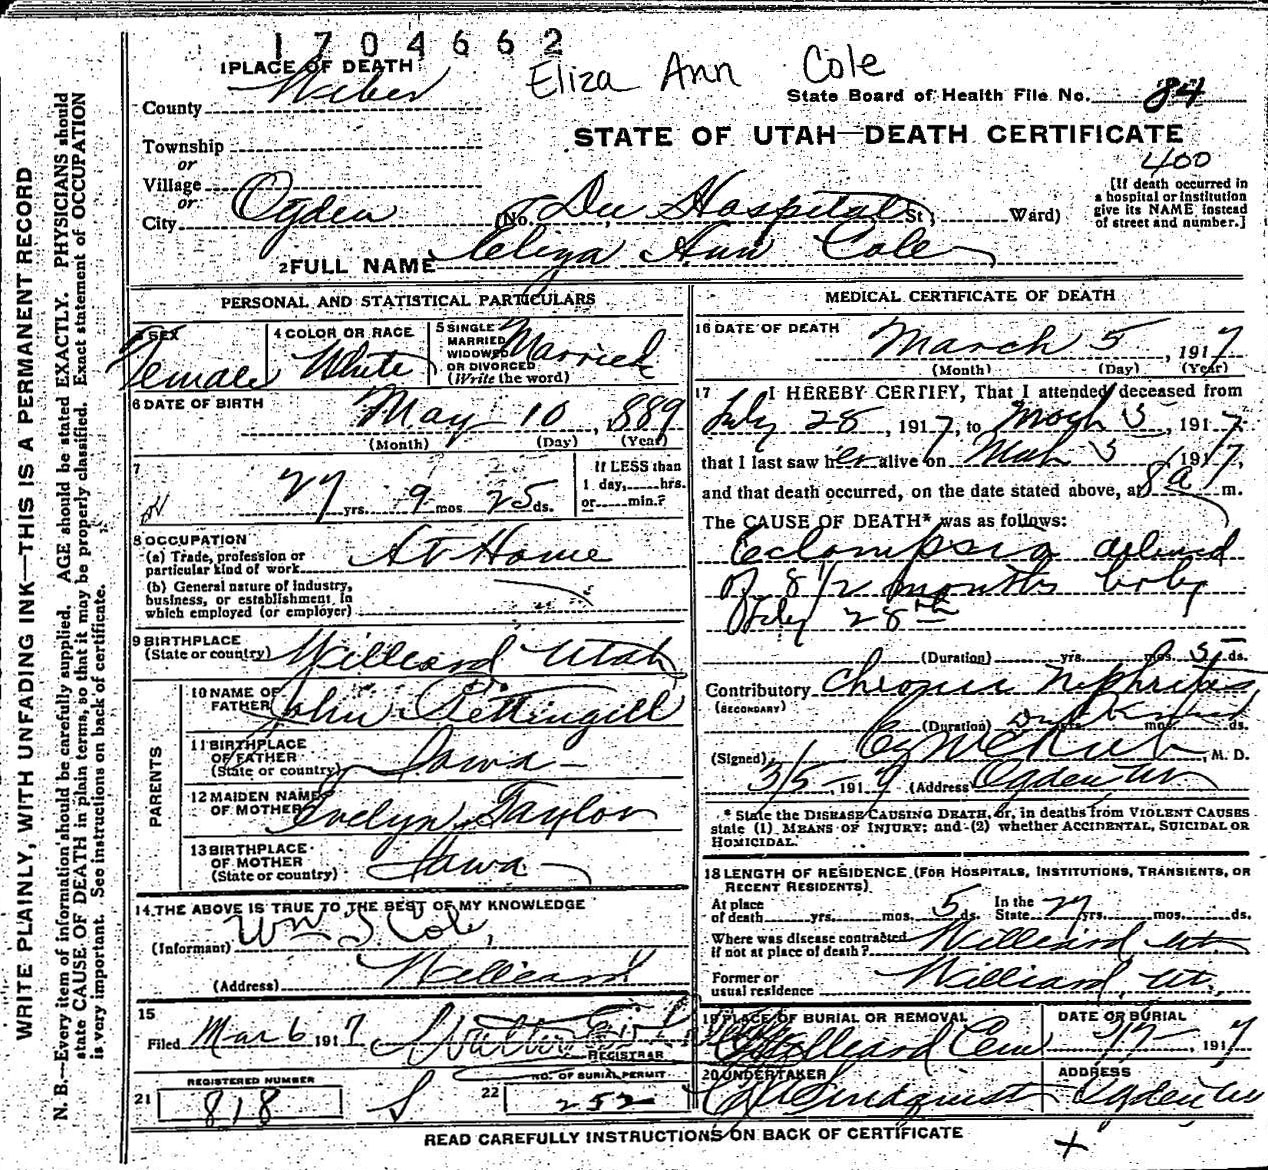 1704662
1 PLACE OF DEATH
Eliza Ann Cole
County Weber
State Board of Health File No. 84
Township
STATE OF UTAH—DEATH CERTIFICATE
or
400
Village
or
City Ogden (No. Dee Hospital St; Ward)
[If death occurred in
a hospital or institution
give its NAME instead
of street and number.]
2 FULL NAME Eliza Ann Cole
PERSONAL AND STATISTICAL PARTICULARS
3 SEX
Female
4 COLOR OR RACE
White
5 SINGLE
MARRIED
WIDOWED
OR DIVORCED
(Write the word)
Married
6 DATE OF BIRTH
May 10, 889
(Month) (Day) (Year)
7
27 yrs. 9 mos. 25 ds.
If LESS than
1 day,......hrs.
or......min.?
8 OCCUPATION
(a) Trade, profession or
particular kind of work At Home
(b) General nature of industry,
business, or establishment in
which employed (or employer)
9 BIRTHPLACE
(State or country) Willard Utah
PARENTS
10 NAME OF
FATHER John Pettingill
11 BIRTHPLACE
OF FATHER
(State or country) Iowa
12 MAIDEN NAME
OF MOTHER Evelyn Taylor
13 BIRTHPLACE
OF MOTHER
(State or country) Iowa
14 THE ABOVE IS TRUE TO THE BEST OF MY KNOWLEDGE
(Informant) Wm S Cole,
(Address) Willard
15
Filed Mar 6 1917
REGISTRAR
REGISTERED NUMBER
21 818
NO. OF BURIAL PERMIT
22 252
MEDICAL CERTIFICATE OF DEATH
16 DATE OF DEATH
March 5, 1917
(Month) (Day) (Year)
17 I HEREBY CERTIFY, That I attended deceased from
Feby 28, 1917, to Mach 5, 1917
that I last saw her alive on Mach 5 1917,
and that death occurred, on the date stated above, at 8 a m.
The CAUSE OF DEATH* was as follows:
Eclampsia delivered
of 8 1/2 months baby
Feby 28th
(Duration) yrs. mos. 5 ds.
Contributory Chronic Nephritis
(SECONDARY)
(Duration) yrs. mos. ds.
(Signed) M. D.
3/5, 1917 (Address) Ogden Ut
* State the DISEASE CAUSING DEATH, or, in deaths from VIOLENT CAUSES
state (1) MEANS OF INJURY; and (2) whether ACCIDENTAL, SUICIDAL OR
HOMICIDAL.
18 LENGTH OF RESIDENCE (FOR HOSPITALS, INSTITUTIONS, TRANSIENTS, OR
RECENT RESIDENTS)
At place
of death yrs. mos. 5 ds. In the
State 27 yrs. mos. ds.
Where was disease contracted
if not at place of death? Willard Ut
Former or
usual residence Willard Ut.
19 PLACE OF BURIAL OR REMOVAL
Willard Cem
DATE OF BURIAL
3/7, 1917
20 UNDERTAKER
Lindquist
ADDRESS
Ogden Ut
READ CAREFULLY INSTRUCTIONS ON BACK OF CERTIFICATE
WRITE PLAINLY, WITH UNFADING INK—THIS IS A PERMANENT RECORD
N. B.—Every item of information should be carefully supplied. AGE should be stated EXACTLY. PHYSICIANS should
state CAUSE OF DEATH in plain terms, so that it may be properly classified. Exact statement of OCCUPATION
is very important. See instructions on back of certificate.